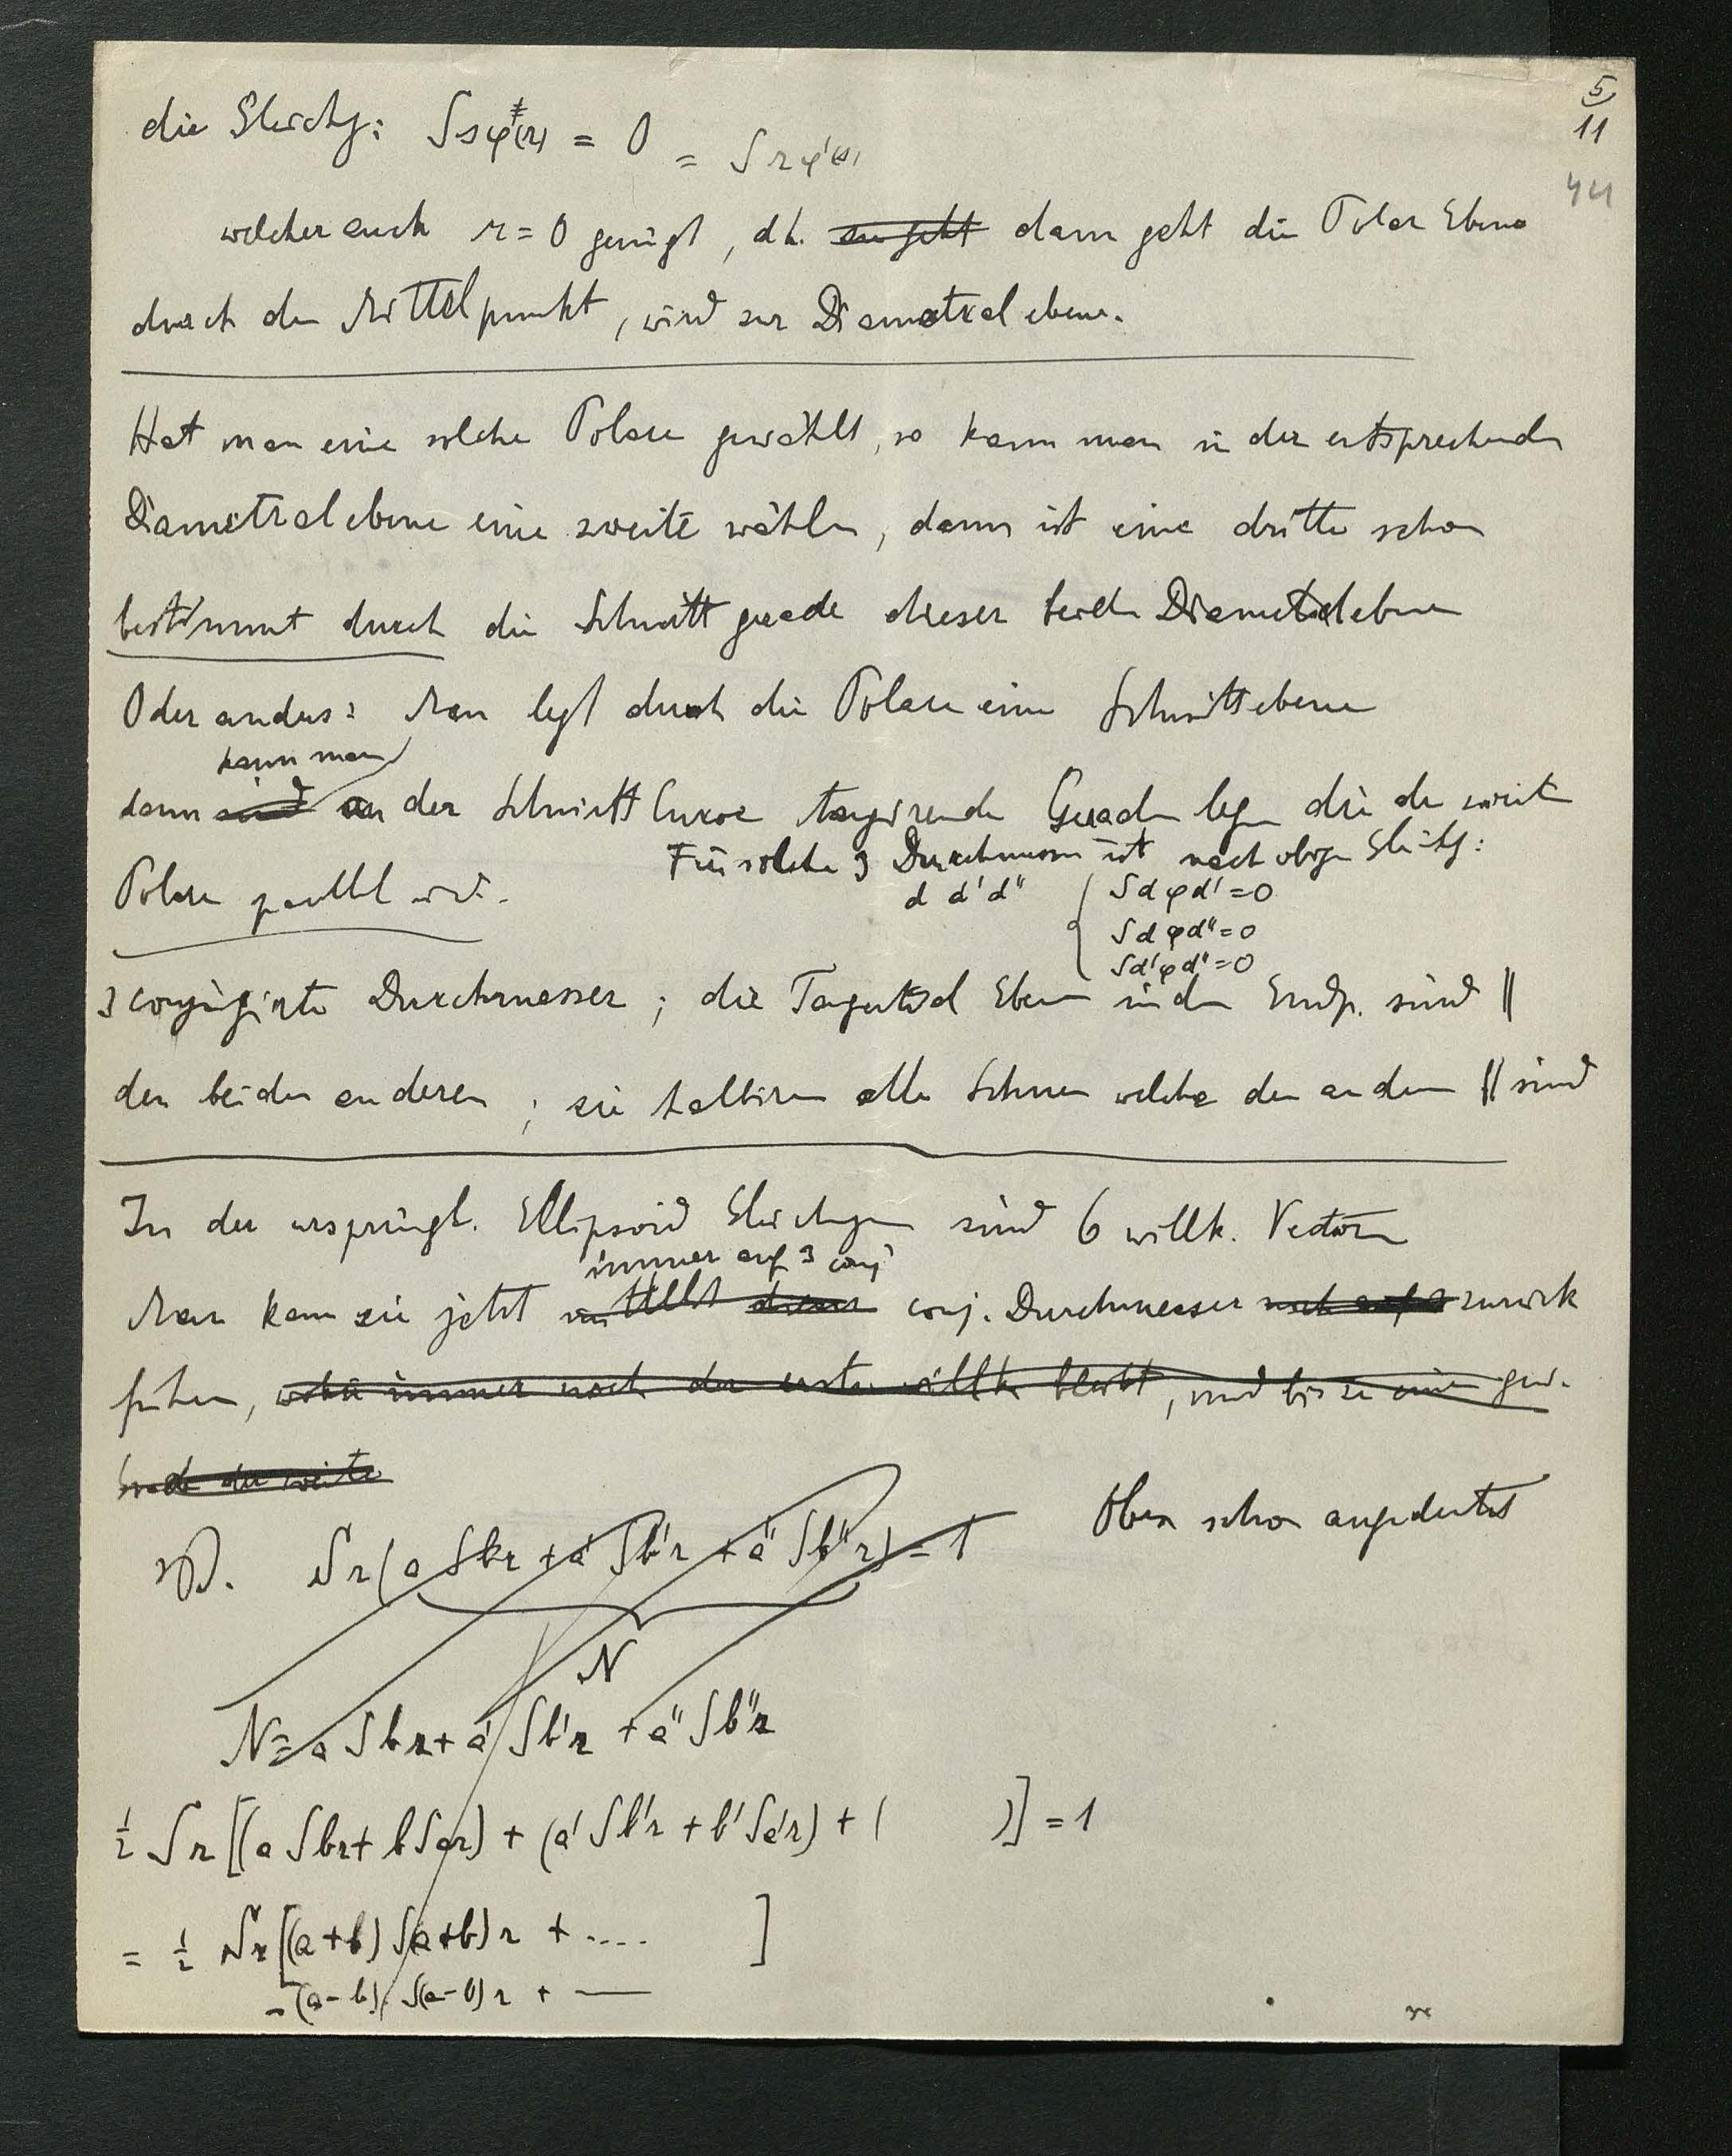 5
11
44
die Gleichg: Ssφ(r) = 0 = S r φ'(s)
welcher auch r = 0 genügt, dh. er geht dann geht die Polar Ebene
durch den Mittelpunkt, wird zur Diametralebene.
Hat man eine solche Polare gewählt, so kann man in der entsprechenden
Diametralebene eine zweite wählen, dann ist eine dritte schon
bestimmt durch die Schnittgerade dieser beiden Diametralebenen
Oder anders: Man legt durch die Polare eine Schnittebene
kann man
dann sind an der Schnittcurve tangirende Geraden legen die der zweiten
Polare parallel sind.
Für solche 3 Durchmesser ist nach obiger Gleichg:
d d' d" { S d φ d' = 0
S d φ d" = 0
S d' φ d" = 0
3 conjugirte Durchmesser; die Tangential Ebenen in den Endp. sind ||
den beiden anderen; sie halbiren alle Sehnen welche den andern || sind
In der ursprüngl. Ellipsoid Gleichungen sind 6 willk. Vectoren
immer auf 3 conj
Man kann sie jetzt mittelst dieser conj. Durchmesser noch auf 3 zurück
führen, wobei immer noch der erste willk. bleibt, und bis zu einem gew.
Grade der zweite
Oben schon angedeutet
S r (a S b r + a' S b' r + a" S b" r) = 1
N
N = a S b r + a' S b' r + a" S b" r
1/2 S r [(a S b r + b S a r) + (a' S b' r + b' S a' r) + ( )] = 1
= 1/2 S r [(a + b) S (a + b) r + .... ]
- (a - b) S (a - b) r + —